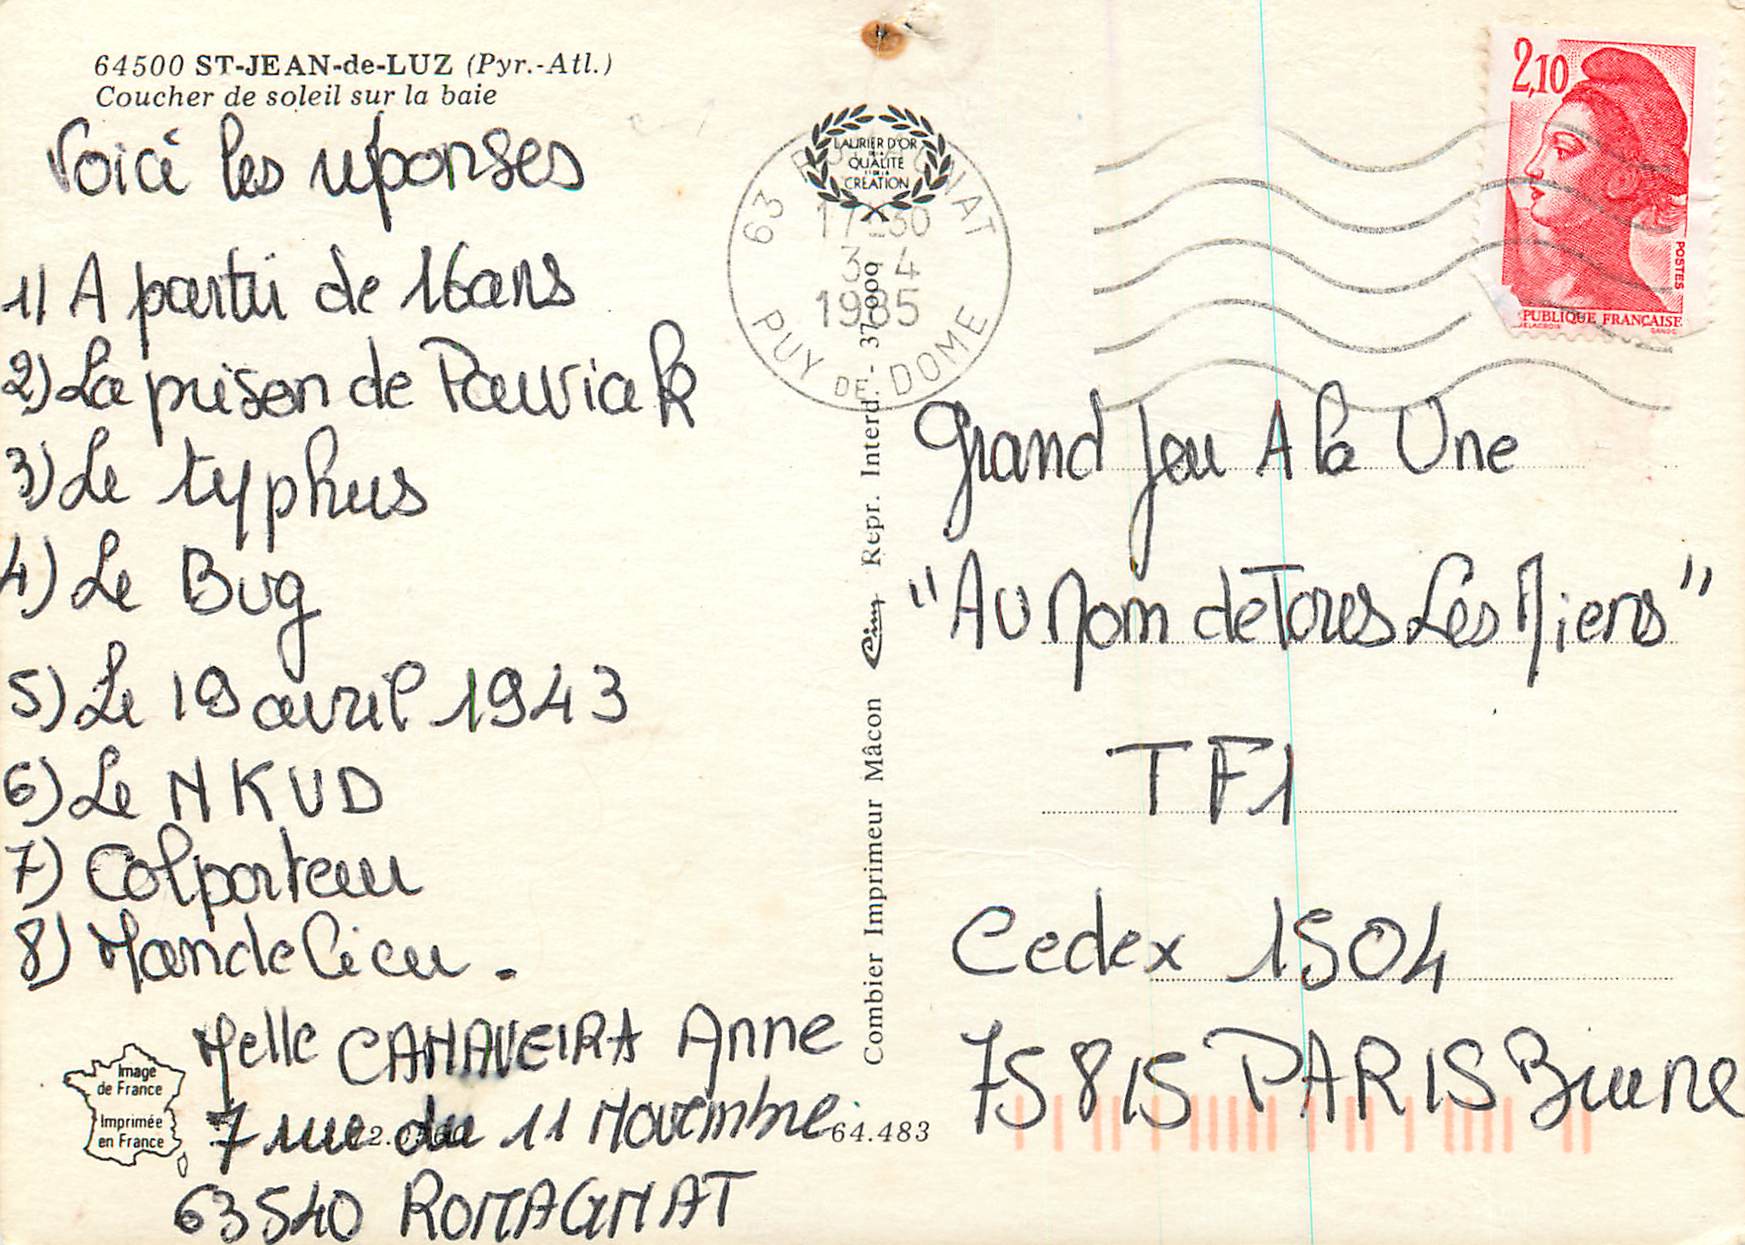 64500 ST-JEAN-de-LUZ (Pyr.-Atl.)
Coucher de soleil sur la baie
Voici les réponses
1) A partir de 16 ans
2) La prison de Pawiak
3) Le typhus
4) Le Bug
5) Le 19 avril 1943
6) Le NKVD
7) Colporteur
8) Mandelieu.
Melle CANAVEIRA Anne
7 rue du 11 Novembre
63540 ROMAGNAT
Image
de France
Imprimée
en France
64.483
Combier Imprimeur Mâcon Cim Repr. Interd. - 37 0009
LAURIER D'OR
DE LA
QUALITÉ
ET DE LA
CRÉATION
63 ROMAGNAT
17-30
3-4
1985
PUY DE DOME
2,10
POSTES
PUBLIQUE FRANÇAISE
DELACROIX
GANDON
Grand Jeu A la Une
"Au Nom de Tous Les Miens"
TF1
Cedex 1504
75815 PARIS Brune